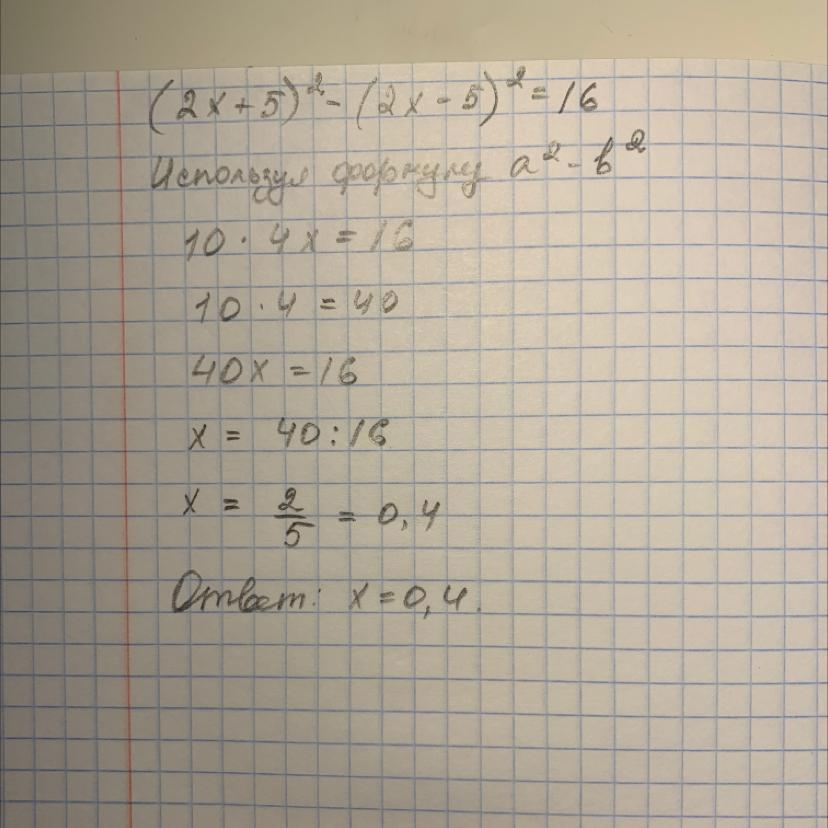 (2x+5)²-(2x-5)²=16
Используя формулу a²-b²
10·4x=16
10·4=40
40x=16
x = 40:16
x = 2/5 = 0,4
Ответ: x=0,4.